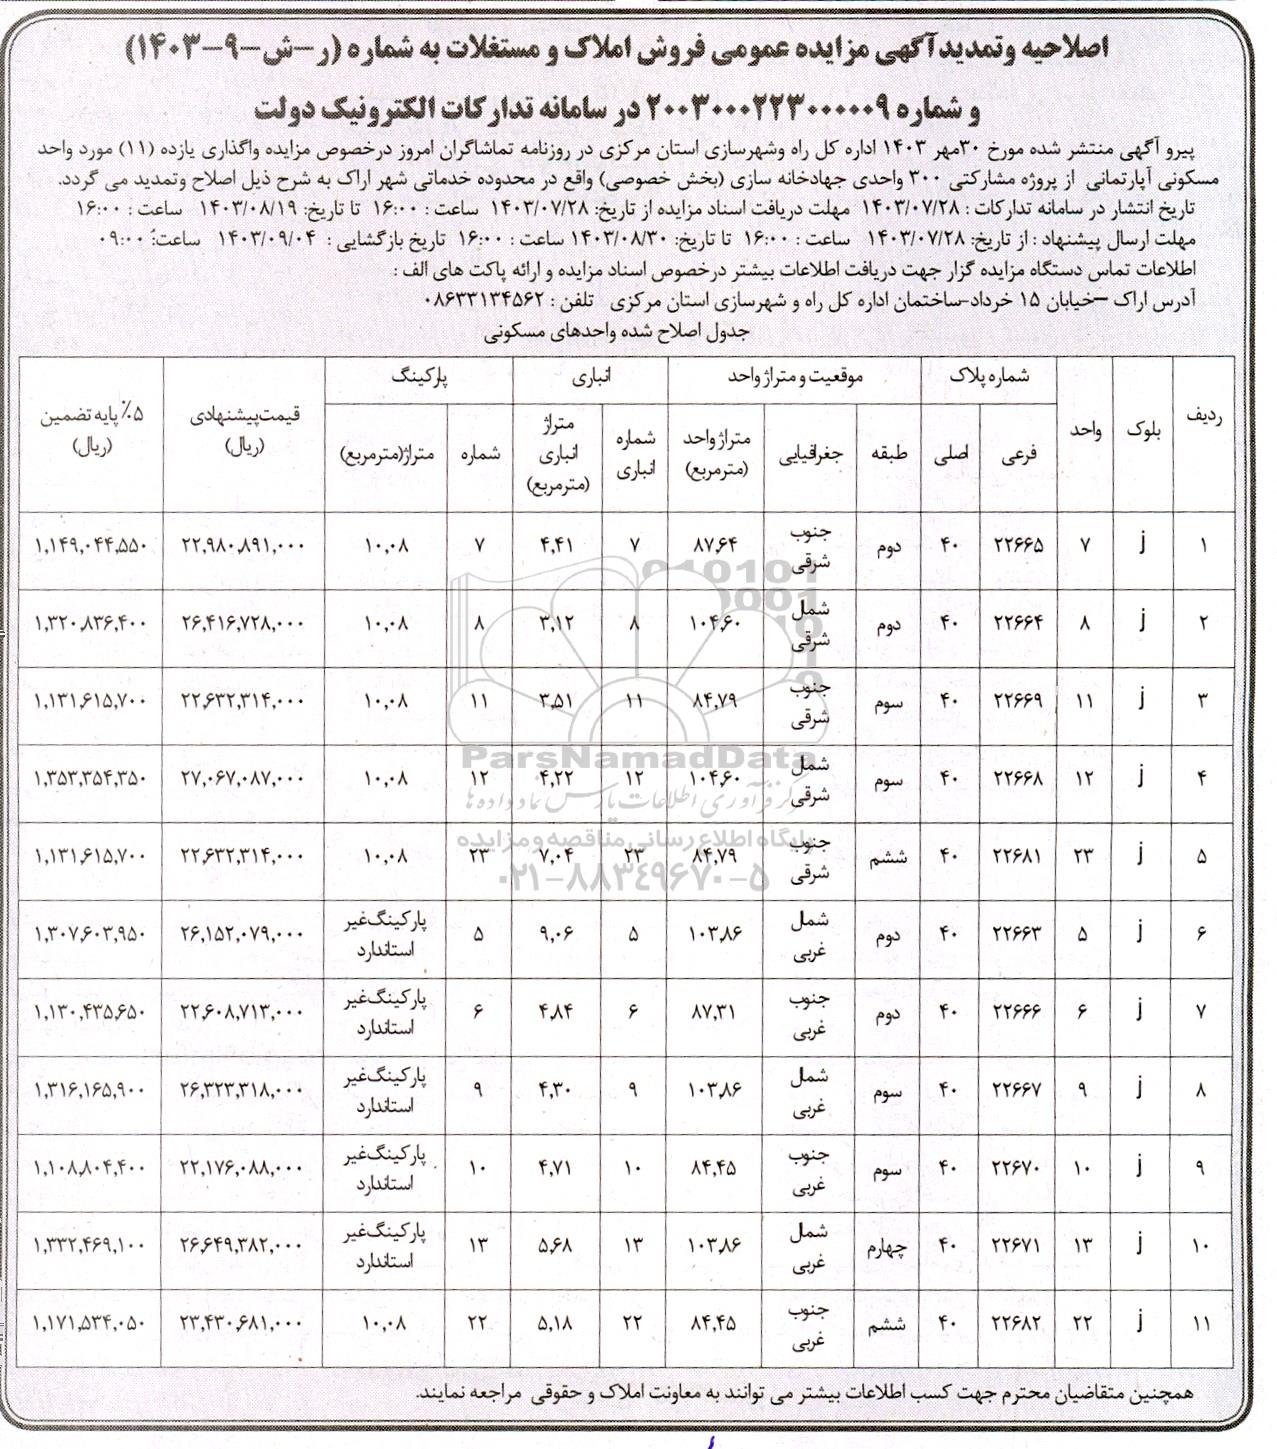 اصلاحیه وتمدیدآگهی مزایده عمومی فروش املاک و مستغلات به شماره (ر-ش-۹-۱۴۰۳)
و شماره ۲۰۰۳۰۰۰۲۲۳۰۰۰۰۰۹ در سامانه تدارکات الکترونیک دولت
پیرو آگهی منتشر شده مورخ ۳۰مهر ۱۴۰۳ اداره کل راه وشهرسازی استان مرکزی در روزنامه تماشاگران امروز درخصوص مزایده واگذاری یازده (۱۱) مورد واحد
مسکونی آپارتمانی از پروژه مشارکتی ۳۰۰ واحدی جهادخانه سازی (بخش خصوصی) واقع در محدوده خدماتی شهر اراک به شرح ذیل اصلاح وتمدید می گردد.
تاریخ انتشار در سامانه تدارکات : ۱۴۰۳/۰۷/۲۸ مهلت دریافت اسناد مزایده از تاریخ: ۱۴۰۳/۰۷/۲۸ ساعت : ۱۶:۰۰ تا تاریخ: ۱۴۰۳/۰۸/۱۹ ساعت : ۱۶:۰۰
مهلت ارسال پیشنهاد : از تاریخ: ۱۴۰۳/۰۷/۲۸ ساعت : ۱۶:۰۰ تا تاریخ: ۱۴۰۳/۰۸/۳۰ ساعت : ۱۶:۰۰ تاریخ بازگشایی : ۱۴۰۳/۰۹/۰۴ ساعت: ۰۹:۰۰
اطلاعات تماس دستگاه مزایده گزار جهت دریافت اطلاعات بیشتر درخصوص اسناد مزایده و ارائه پاکت های الف :
آدرس اراک –خیابان ۱۵ خرداد-ساختمان اداره کل راه و شهرسازی استان مرکزی تلفن : ۰۸۶۳۳۱۳۴۵۶۲
جدول اصلاح شده واحدهای مسکونی
ردیف بلوک واحد شماره پلاک موقعیت و متراژ واحد انباری پارکینگ قیمت‌پیشنهادی (ریال) ۵٪ پایه تضمین (ریال)
فرعی اصلی طبقه جغرافیایی متراژ واحد (مترمربع) شماره انباری متراژ انباری (مترمربع) شماره متراژ(مترمربع)
۱ j ۷ ۲۲۶۶۵ ۴۰ دوم جنوب شرقی ۸۷,۶۴ ۷ ۴,۴۱ ۷ ۱۰,۰۸ ۲۲,۹۸۰,۸۹۱,۰۰۰ ۱,۱۴۹,۰۴۴,۵۵۰
۲ j ۸ ۲۲۶۶۴ ۴۰ دوم شمال شرقی ۱۰۴,۶۰ ۸ ۳,۱۲ ۸ ۱۰,۰۸ ۲۶,۴۱۶,۷۲۸,۰۰۰ ۱,۳۲۰,۸۳۶,۴۰۰
۳ j ۱۱ ۲۲۶۶۹ ۴۰ سوم جنوب شرقی ۸۴,۷۹ ۱۱ ۳,۵۱ ۱۱ ۱۰,۰۸ ۲۲,۶۳۲,۳۱۴,۰۰۰ ۱,۱۳۱,۶۱۵,۷۰۰
۴ j ۱۲ ۲۲۶۶۸ ۴۰ سوم شمال شرقی ۱۰۴,۶۰ ۱۲ ۴,۲۲ ۱۲ ۱۰,۰۸ ۲۷,۰۶۷,۰۸۷,۰۰۰ ۱,۳۵۳,۳۵۴,۳۵۰
۵ j ۲۳ ۲۲۶۸۱ ۴۰ ششم جنوب شرقی ۸۴,۷۹ ۲۳ ۷,۰۴ ۲۳ ۱۰,۰۸ ۲۲,۶۳۲,۳۱۴,۰۰۰ ۱,۱۳۱,۶۱۵,۷۰۰
۶ j ۵ ۲۲۶۶۳ ۴۰ دوم شمال غربی ۱۰۳,۸۶ ۵ ۹,۰۶ ۵ پارکینگ‌غیر استاندارد ۲۶,۱۵۲,۰۷۹,۰۰۰ ۱,۳۰۷,۶۰۳,۹۵۰
۷ j ۶ ۲۲۶۶۶ ۴۰ دوم جنوب غربی ۸۷,۳۱ ۶ ۴,۸۴ ۶ پارکینگ‌غیر استاندارد ۲۲,۶۰۸,۷۱۳,۰۰۰ ۱,۱۳۰,۴۳۵,۶۵۰
۸ j ۹ ۲۲۶۶۷ ۴۰ سوم شمال غربی ۱۰۳,۸۶ ۹ ۴,۳۰ ۹ پارکینگ‌غیر استاندارد ۲۶,۳۲۳,۳۱۸,۰۰۰ ۱,۳۱۶,۱۶۵,۹۰۰
۹ j ۱۰ ۲۲۶۷۰ ۴۰ سوم جنوب غربی ۸۴,۴۵ ۱۰ ۴,۷۱ ۱۰ پارکینگ‌غیر استاندارد ۲۲,۱۷۶,۰۸۸,۰۰۰ ۱,۱۰۸,۸۰۴,۴۰۰
۱۰ j ۱۳ ۲۲۶۷۱ ۴۰ چهارم شمال غربی ۱۰۳,۸۶ ۱۳ ۵,۶۸ ۱۳ پارکینگ‌غیر استاندارد ۲۶,۶۴۹,۳۸۲,۰۰۰ ۱,۳۳۲,۴۶۹,۱۰۰
۱۱ j ۲۲ ۲۲۶۸۲ ۴۰ ششم جنوب غربی ۸۴,۴۵ ۲۲ ۵,۱۸ ۲۲ ۱۰,۰۸ ۲۳,۴۳۰,۶۸۱,۰۰۰ ۱,۱۷۱,۵۳۴,۰۵۰
همچنین متقاضیان محترم جهت کسب اطلاعات بیشتر می توانند به معاونت املاک و حقوقی مراجعه نمایند.
ParsNamadData
پایگاه اطلاع رسانی مناقصه و مزایده
۰۲۱-۸۸۳۴۹۶۷۰-۵